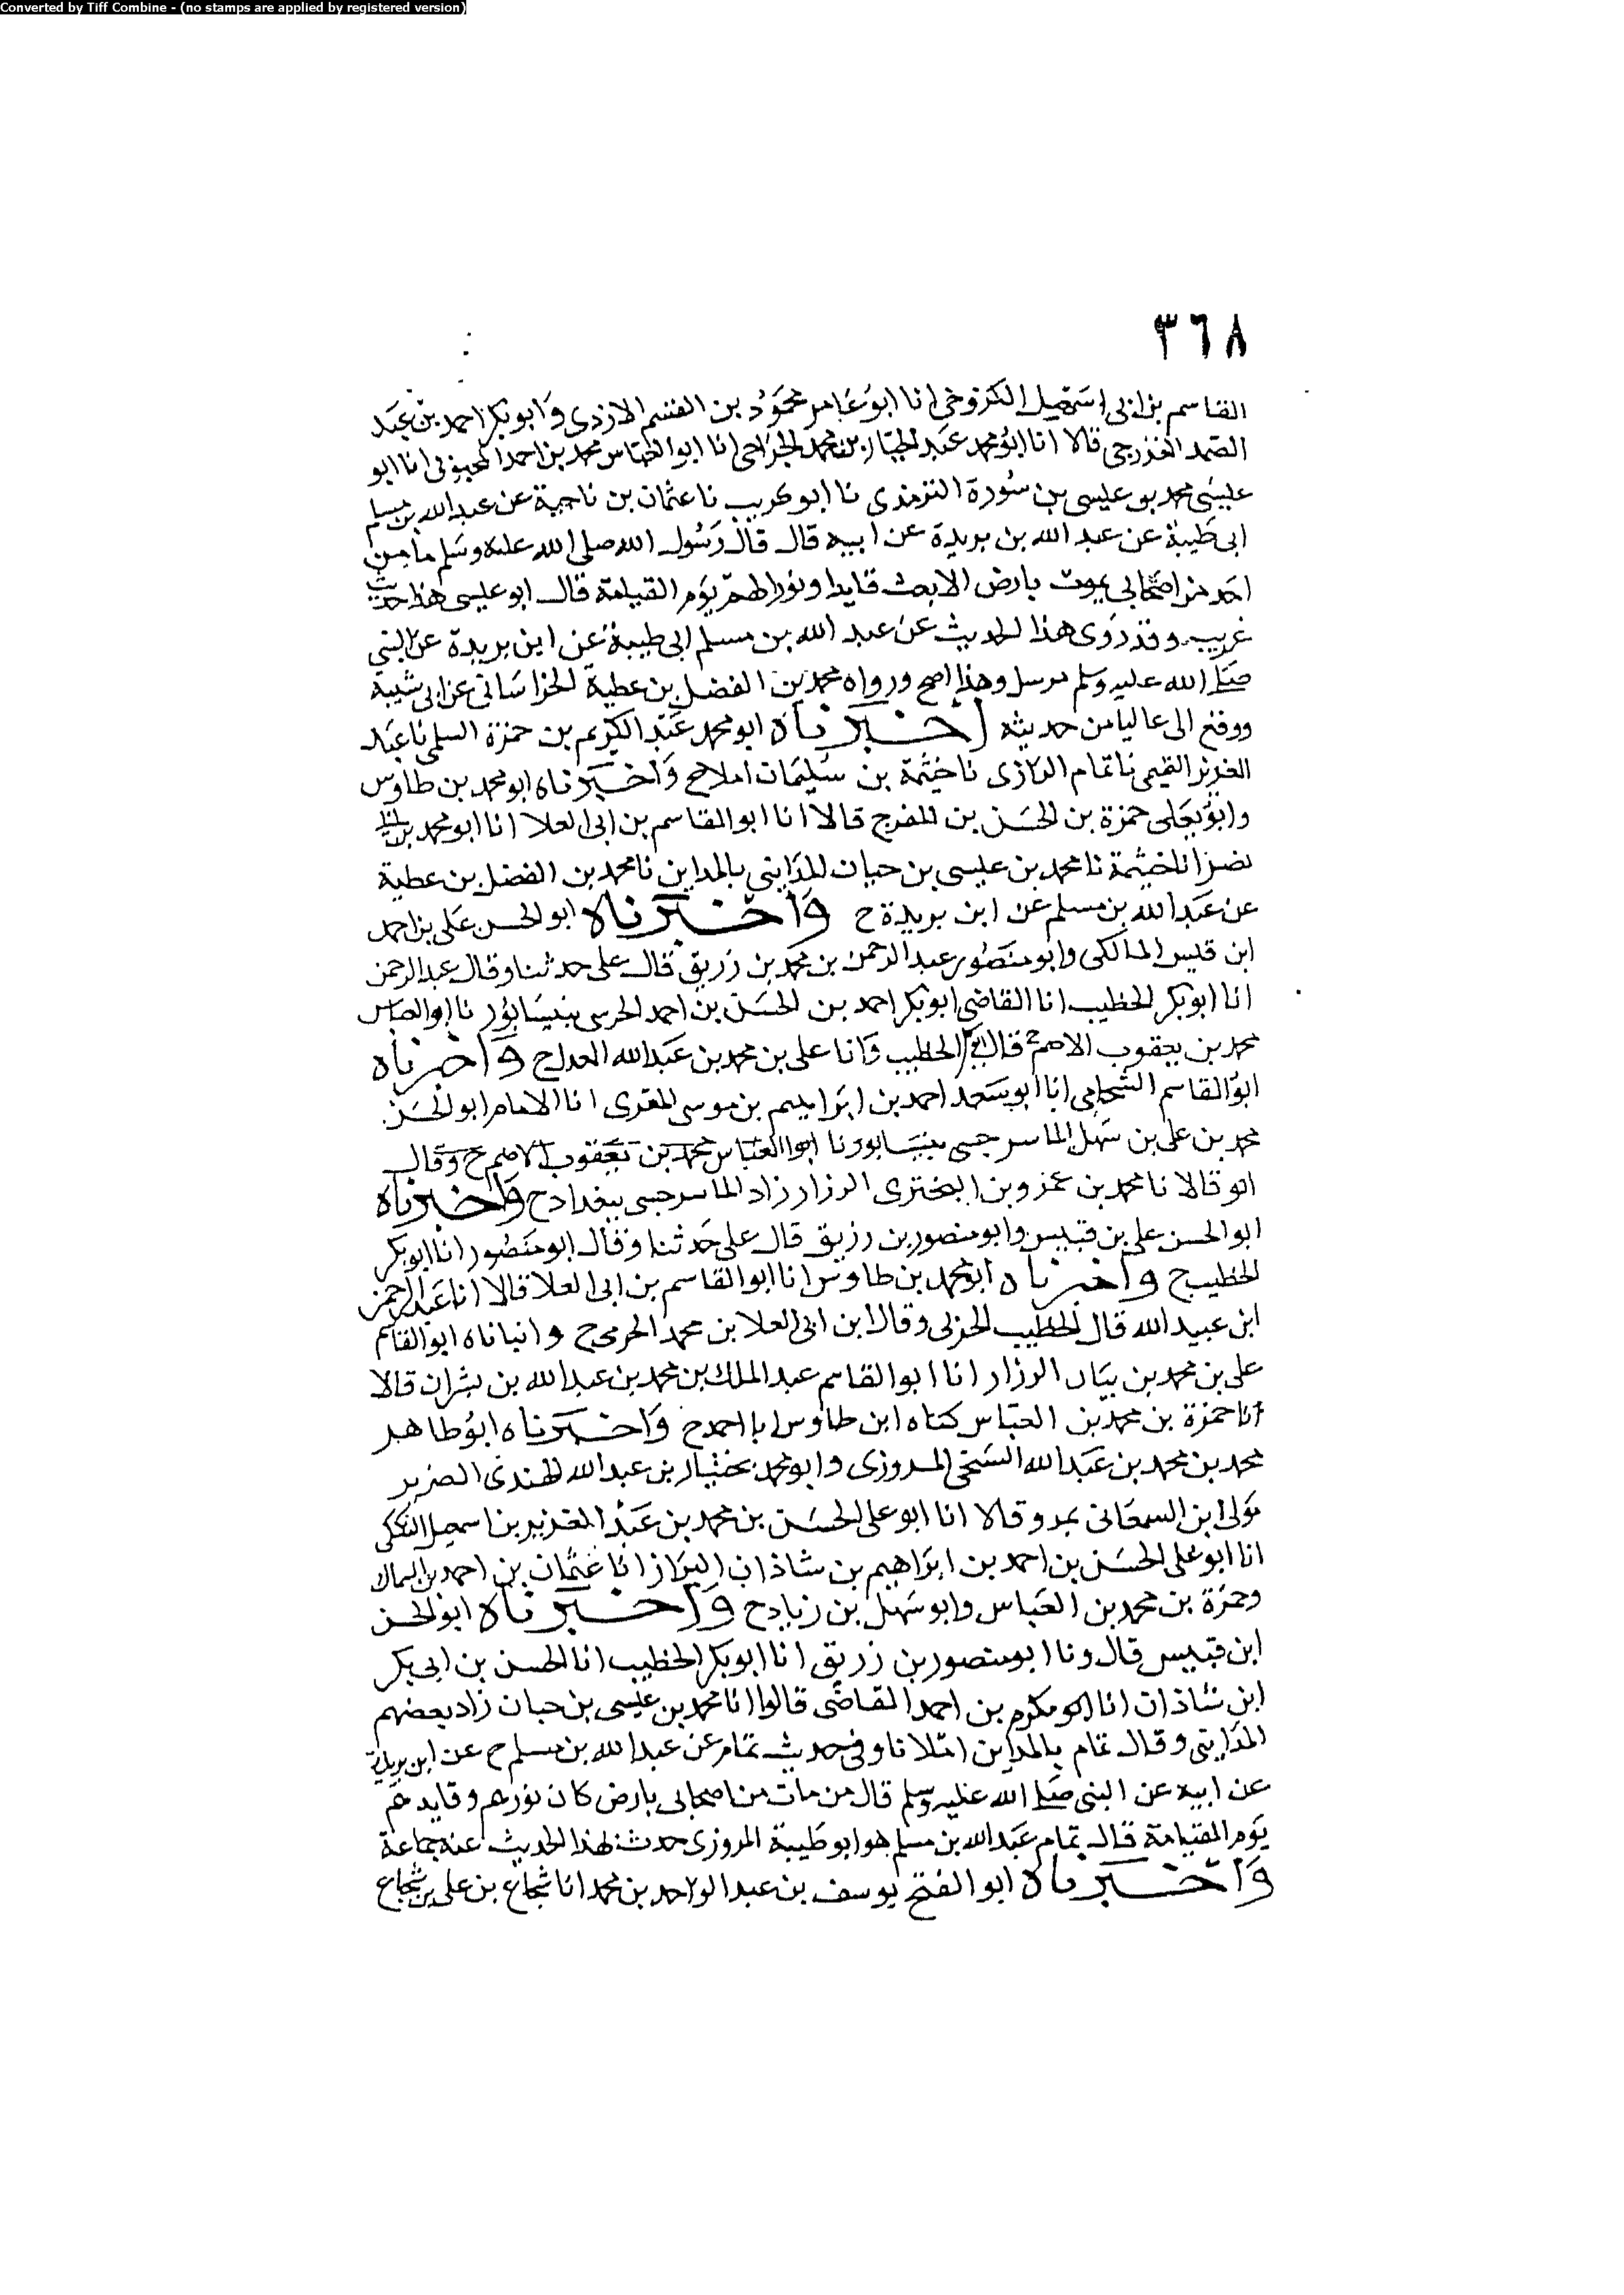 Converted by Tiff Combine - (no stamps are applied by registered version)
٣٦٨
القاسم بن ابي اسمعيل الكروخي انا ابو عامر محمود بن القسم الازدي وابو بكر احمد بن عبد
الصمد الغورجي قالا انا ابو محمد عبد الجبار بن محمد الجراحي انا ابو العباس محمد بن احمد المحبوبي انا ابو
عيسى محمد بن عيسى بن سورة الترمذي نا ابو كريب نا عثمان بن ناجية عن عبد الله بن مسلم
ابي طيبة عن عبد الله بن بريدة عن ابيه قال قال رسول الله صلى الله عليه وسلم ما من
احد من اصحابي يموت بارض الا بعث قايدا ونورا لهم يوم القيامة قال ابو عيسى هذا حديث
غريب وقد روى هذا الحديث عن عبد الله بن مسلم ابي طيبة عن ابن بريدة عن النبي
صلى الله عليه وسلم مرسل وهذا اصح ورواه محمد بن الفضل بن عطية الخراساني عن ابي شيبة
ووقع الى عاليا من حديثه اخبرناه ابو محمد عبد الكريم بن حمزة السلمي نا عبد
العزيز التميمي نا تمام الرازي نا خيثمة بن سليمان املا ح واخبرناه ابو محمد بن طاوس
وابو يعلى حمزة بن الحسن بن المفرج قالا انا ابو القاسم بن ابي العلا انا ابو محمد بن ابي
نصر انا خيثمة نا محمد بن عيسى بن حيان المدايني بالمداين نا محمد بن الفضل بن عطية
عن عبد الله بن مسلم عن ابن بريدة ح واخبرناه ابو الحسن علي بن احمد
ابن قبيس المالكي وابو منصور عبد الرحمن بن محمد بن زريق قال علي حدثنا وقال عبد الرحمن
انا ابو بكر الخطيب انا القاضي ابو بكر احمد بن الحسن بن احمد الحرسي بنيسابور نا ابو العباس
محمد بن يعقوب الاصم ح قال ابو بكر الخطيب وانا علي بن محمد بن عبد الله المعدل ح واخبرناه
ابو القاسم الشحامي انا ابو سعد احمد بن ابراهيم بن موسى المقرى انا الامام ابو الحسن
محمد بن علي بن سهل الماسرجسي بنيسابور نا ابو العباس محمد بن يعقوب الاصم ح وقال
قالا نا محمد بن عمرو بن البختري الرزاز زاد الماسرجسي ببغداد ح واخبرناه
ابو الحسن علي بن قبيس وابو منصور بن زريق قال علي حدثنا وقال ابو منصور انا ابو بكر
الخطيب ح واخبرناه ابو محمد بن طاوس انا ابو القاسم بن ابي العلا قالا انا عبد الرحمن
ابن عبيد الله قال الخطيب الحربي وقال ابن ابي العلا بن محمد الحرمي ح وانباناه ابو القاسم
علي بن محمد بن بيان الرزاز انا ابو القاسم عبد الملك بن محمد بن عبد الله بن بشران قالا
انا حمزة بن محمد بن العباس كناه ابن طاوس ابا احمد ح واخبرناه ابو طاهر
محمد بن محمد بن عبد الله السنجي المروزي وابو محمد بختيار بن عبد الله الهندي الضرير
مولى ابن السمعاني بمرو قالا انا ابو علي الحسن بن محمد بن عبد العزيز بن اسمعيل التككي
انا ابو علي الحسن بن احمد بن ابراهيم بن شاذان البزاز انا عثمان بن احمد بن السماك
وحمزة بن محمد بن العباس وابو سهل بن زياد ح واخبرناه ابو الحسن
ابن قبيس قال ونا ابو منصور بن زريق انا ابو بكر الخطيب انا الحسن بن ابي بكر
ابن شاذان انا مكرم بن احمد القاضي قالوا انا محمد بن عيسى بن حيان زاد بعضهم
المدايني وقال تمام بالمداين وفي حديث تمام عن عبد الله بن مسلم ح عن ابن بريدة
عن ابيه عن النبي صلى الله عليه وسلم قال من مات من اصحابي بارض كان نورهم وقايدهم
يوم القيامة قال تمام عبد الله بن مسلم هو ابو طيبة المروزي حدث بهذا الحديث عنه جماعة
واخبرناه ابو الفتح يوسف بن عبد الواحد بن محمد انا شجاع بن علي بن شجاع